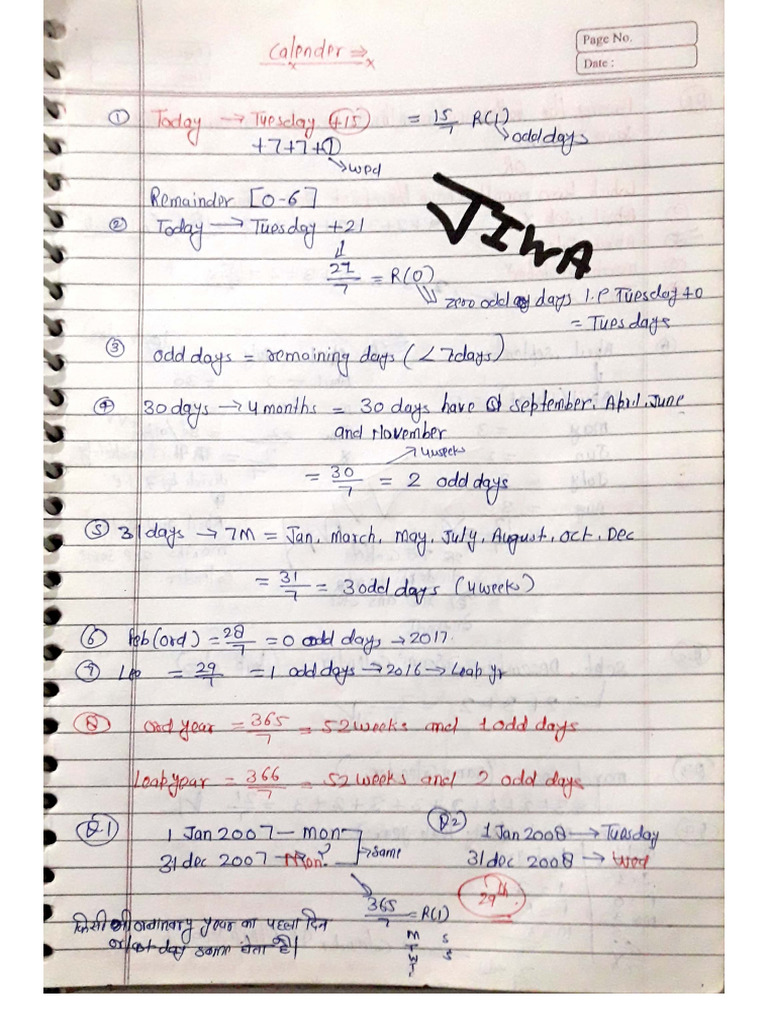 Calender ⇒
Page No.
Date :
① Today → Tuesday +15 = 15/7 R(1)
→ odd days
+7+7+1
→ wed
Remainder [0-6]
② Today → Tuesday +21
↓
21/7 = R(0)
zero odd days i.e Tuesday +0
= Tuesdays
JIWA
③ odd days = remaining days (<7days)
④ 30 days → 4 months = 30 days have September, April, June
and November
→ 4 weeks
= 30/7 = 2 odd days
⑤ 31 days → 7M = Jan, March, May, July, August, Oct, Dec
= 31/7 = 3 odd days (4 weeks)
⑥ Feb (ord) = 28/7 = 0 odd days → 2017.
⑦ Lep = 29/7 = 1 odd days → 2016 → Leap yr
⑧ Ord year = 365/7 = 52 weeks and 1 odd days
Leap year = 366/7 = 52 weeks and 2 odd days
Q.1 1 Jan 2007 - Mon
31 dec 2007 - Mon?
→ Same
365/7 = R(1)
M S
T S
W
T
Q2 1 Jan 2008 → Tuesday
31 dec 2008 → Wed
29th
किसी भी ordinary year का पहला दिन
or last day same होता है।